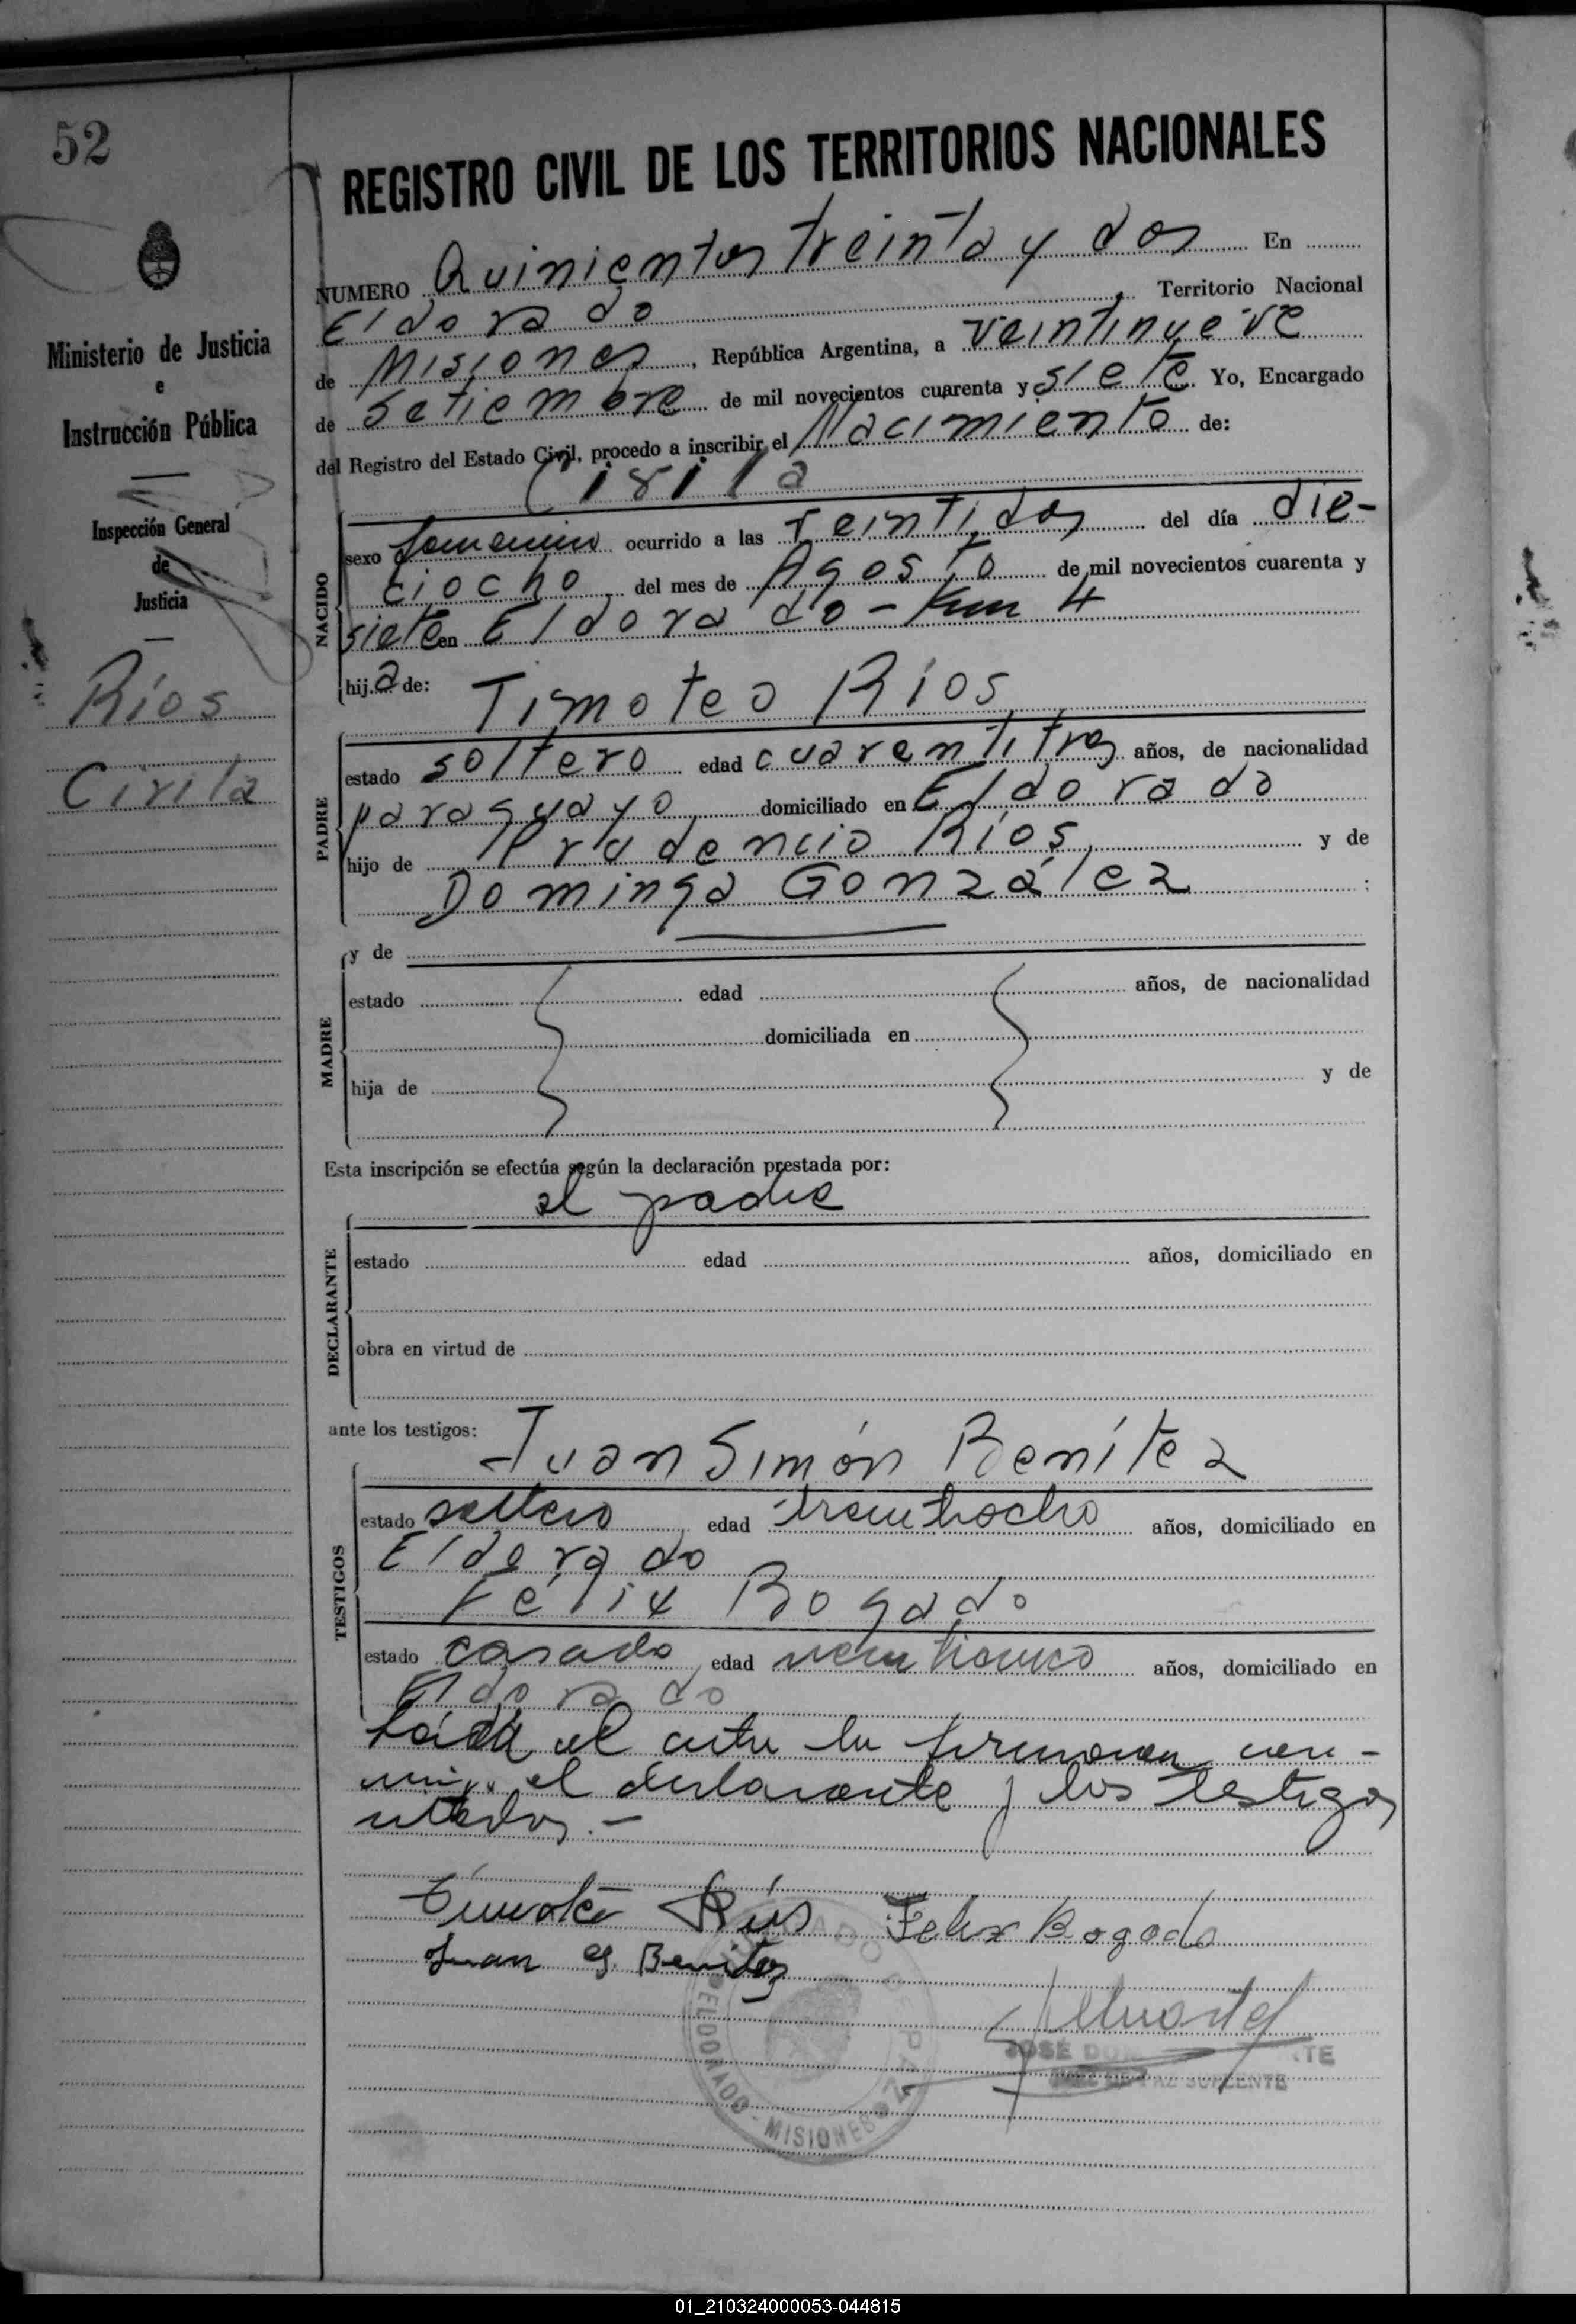 52
REGISTRO CIVIL DE LOS TERRITORIOS NACIONALES
NUMERO Quinientos treinta y dos En
Eldorado, Territorio Nacional
de Misiones, República Argentina, a veintinueve
de setiembre de mil novecientos cuarenta y siete Yo, Encargado
del Registro del Estado Civil, procedo a inscribir el Nacimiento de:
Cirila
Ministerio de Justicia
e
Instrucción Pública
Inspección General
de
Justicia
Ríos
Cirila
NACIDO
sexo femenino ocurrido a las veintidos del día die-
ciocho del mes de Agosto de mil novecientos cuarenta y
siete en Eldorado - Km 4
hija de: Timoteo Ríos
PADRE
estado soltero edad cuarentitres años, de nacionalidad
paraguayo domiciliado en Eldorado
hijo de Prudencio Ríos y de
Dominga González ;
MADRE
y de
estado edad años, de nacionalidad
domiciliada en
hija de y de
Esta inscripción se efectúa según la declaración prestada por:
el padre
DECLARANTE
estado edad años, domiciliado en
obra en virtud de
ante los testigos:
Juan Simón Benítez
TESTIGOS
estado soltero edad treintiocho años, domiciliado en
Eldorado
Félix Bogado
estado casado, edad veinticinco años, domiciliado en
Eldorado
Leída el acta la firmaron con-
migo el declarante y los testigos
citados.-
Timoteo Ríos Felix Bogado
Juan S. Benitez
JOSÉ
SUPLENTE
JUZGADO DE PAZ
ELDORADO - MISIONES
01_210324000053-044815